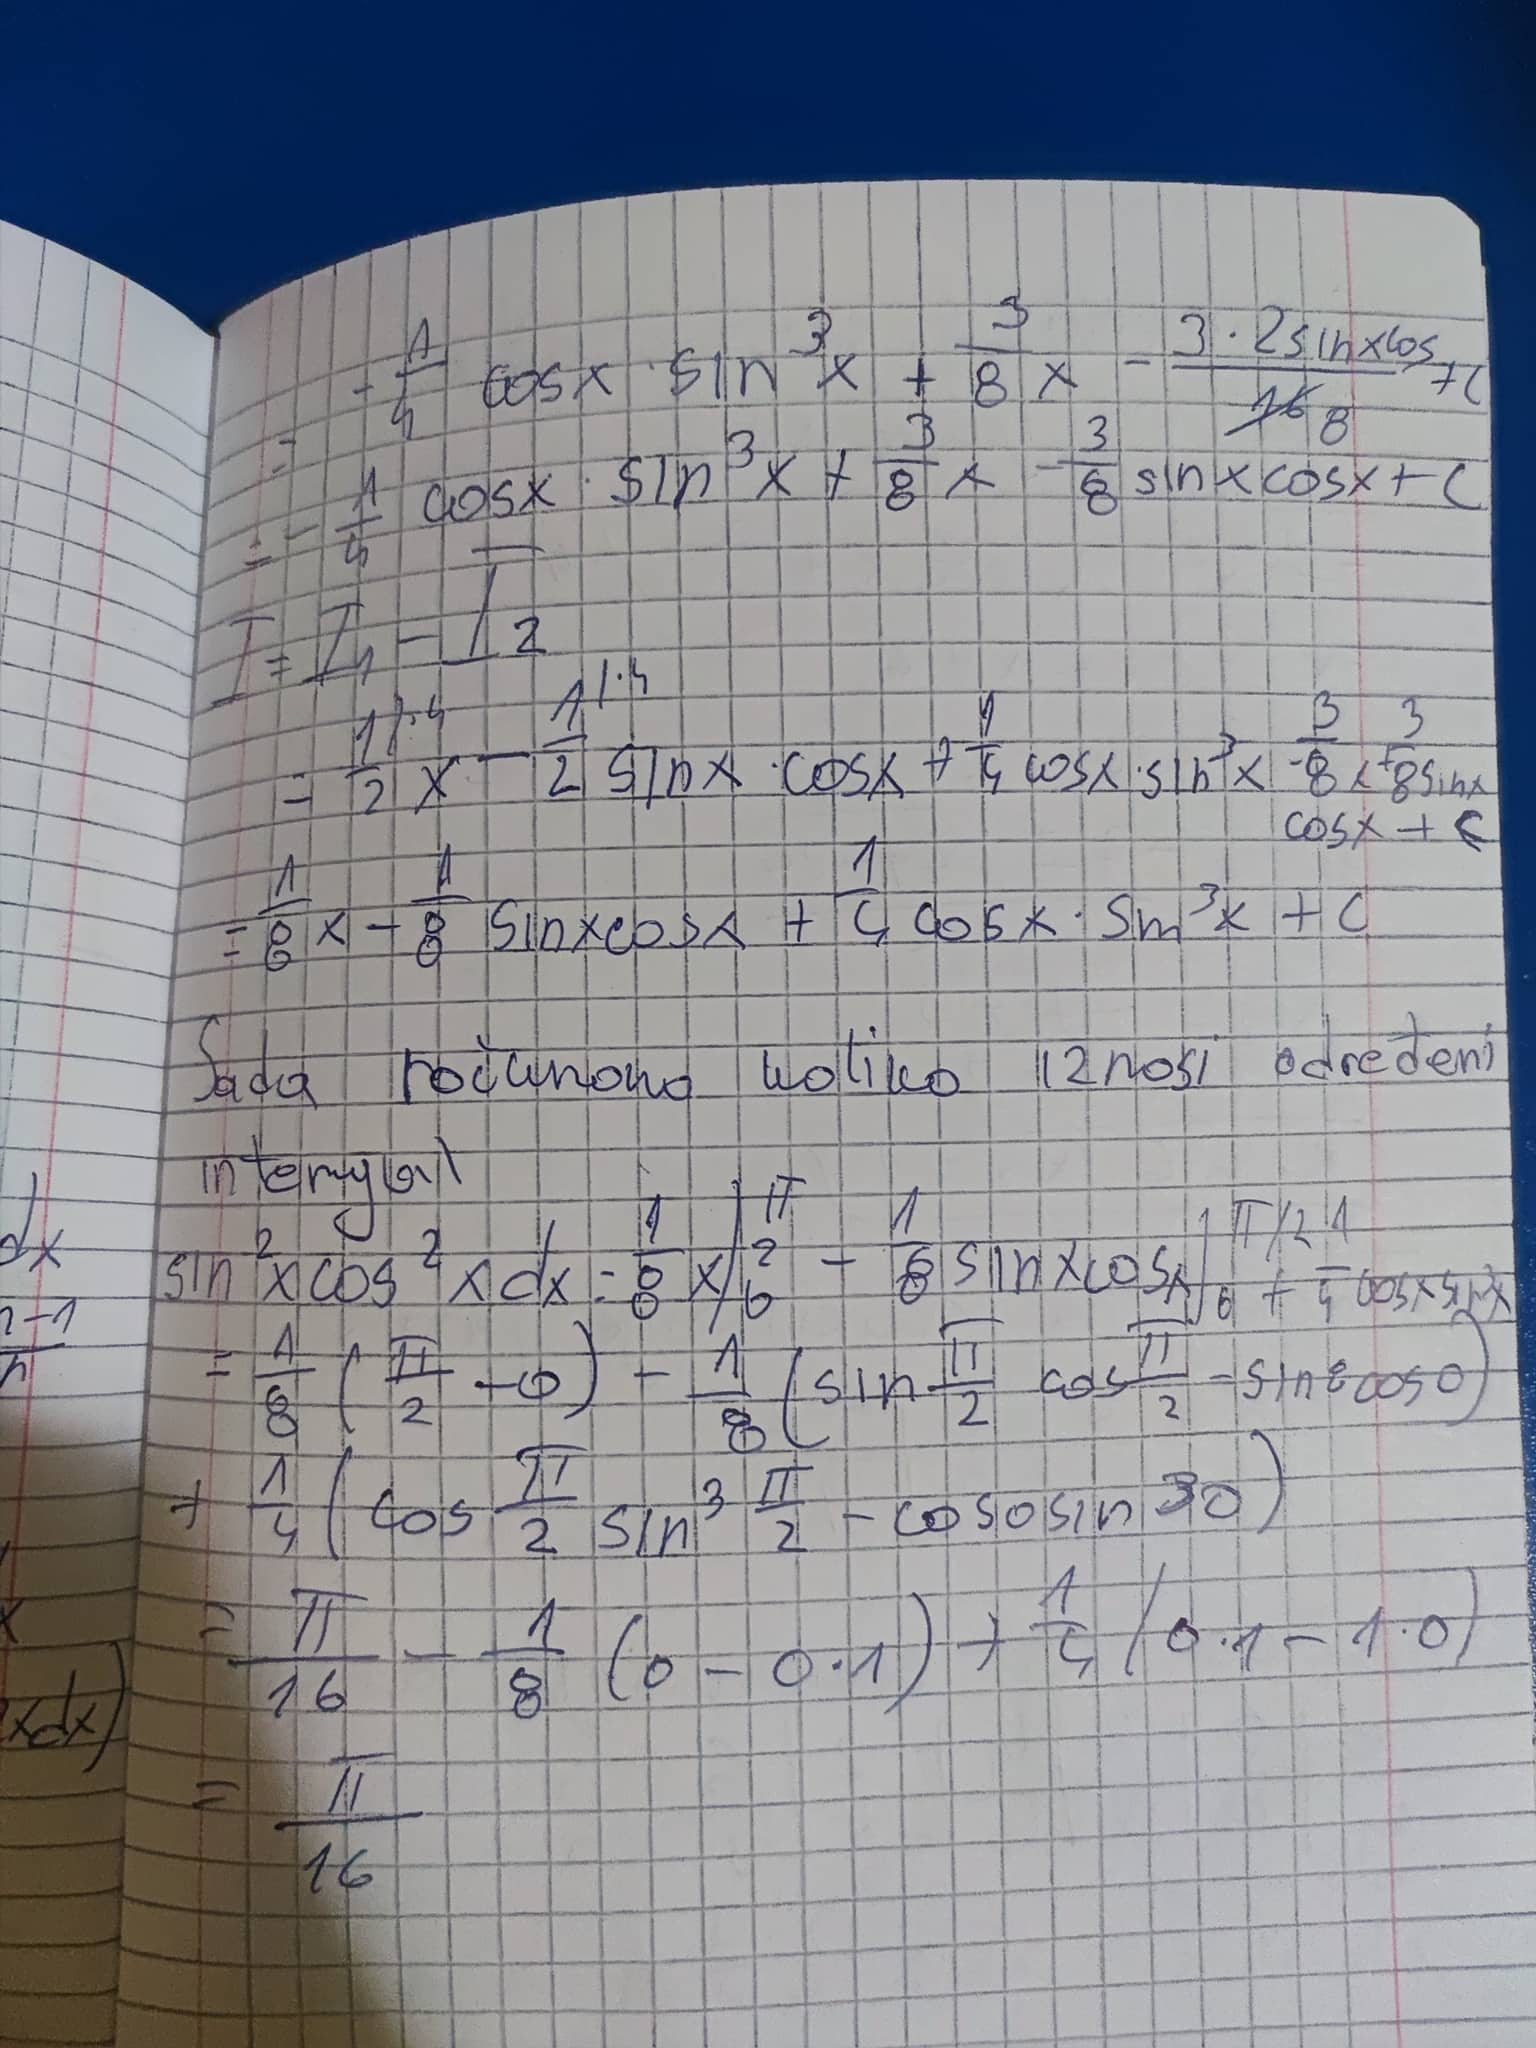 dx
n-1
n
xdx)
-1/4 cosx · sin³x + 3/8 x - 3·2sinxcos/16 8 +C
= -1/4 cosx · sin³x + 3/8 x - 3/8 sinxcosx + C
I = I₁ - I₂
= 1/2|·4 x - 1/2|·4 sinx · cosx + 1/4 cosx · sin³x - 3/8 x + 3/8 sinx
cosx + C
= 1/8 x - 1/8 sinxcosx + 1/4 cosx · sin³x + C
Sada računamo koliko iznosi određeni
integral
sin²xcos²xdx = 1/8 x |π/2 0 - 1/8 sinxcosx |π/2 0 + 1/4 cosxsin³x
= 1/8 (π/2 - 0) - 1/8 (sin π/2 cos π/2 - sin0cos0)
+ 1/4 (cos π/2 sin³ π/2 - cos0sin³0)
= π/16 - 1/8 (0 - 0·1) + 1/4 (0·1 - 1·0)
= π/16